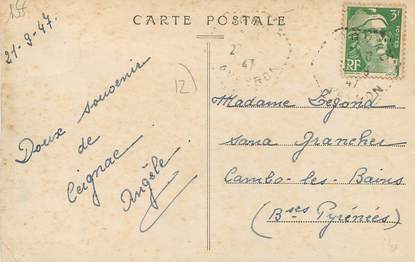 CARTE POSTALE
21-9-47.
Doux souvenir
de
Ceignac.
Angèle.
3F
RF
47
AVEYRON
Madame Legond
sana Franclet
Cambo-les-Bains
(Bses Pyrénées)